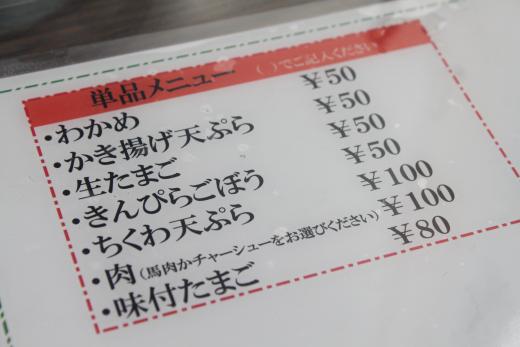 単品メニュー ( )でご記入ください
・わかめ ¥50
・かき揚げ天ぷら ¥50
・生たまご ¥50
・きんぴらごぼう ¥50
・ちくわ天ぷら ¥100
・肉(馬肉かチャーシューをお選びください) ¥100
・味付たまご ¥80